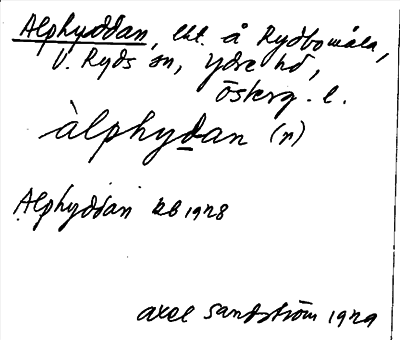 Alphyddan, lht. å Rydbomåla,
V. Ryds sn, Ydre hd,
Österg. l.
àlphydan (n)
Alphyddan kb 1928
Axel Sandström 1929